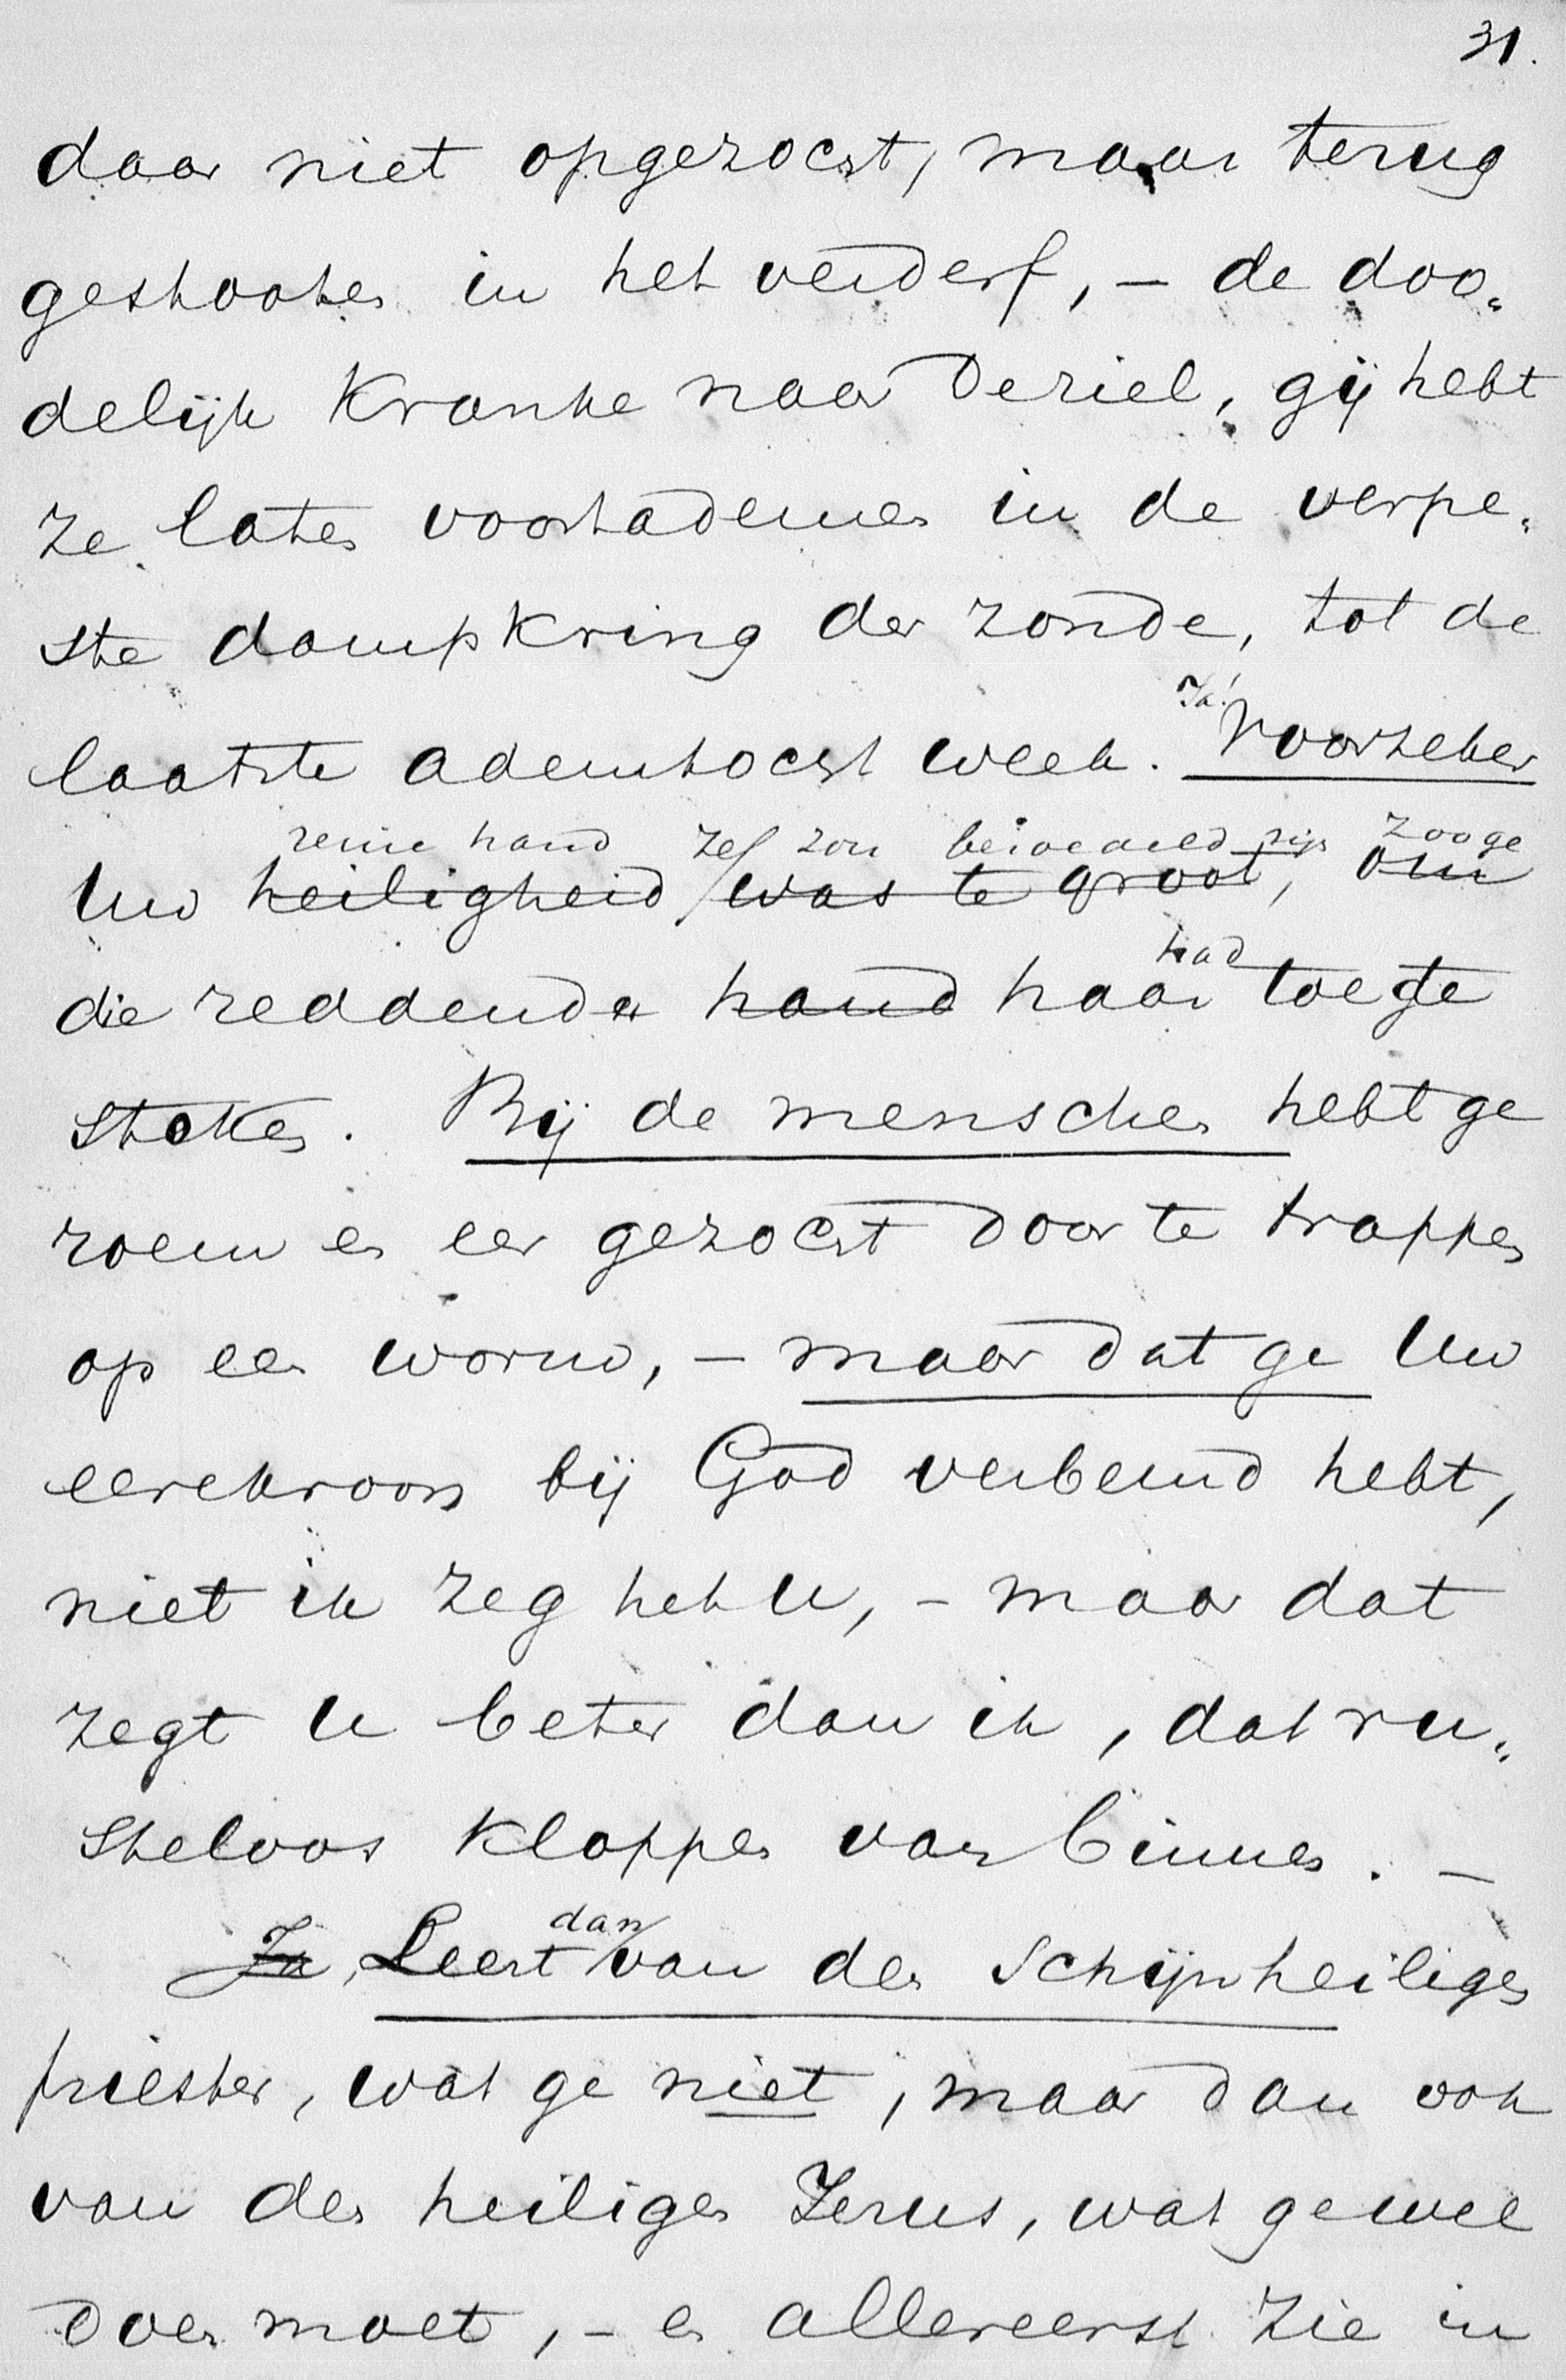 31.
daar niet opgezocht, maar terug
gestooten in het verderf, – de doo„
delijk Kranke naar de ziel, gij hebt
ze laten voortademen in de verpe„
ste dampkring der zonde, tot de
laatste ademtocht week. Ja! Voorzeker
reine hand zelf zou bezoedeld zijn zoo ge
Uw heiligheid was te groot, om
had
die reddende hand haar toege
stoken. Bij de menschen hebt ge
roem en eer gezocht door te trappen
op een worm, – maar dat ge Uw
eerekroon bij God verbeurd hebt,
niet ik zeg het U, – maar dat
zegt U beter dan ik, dat ru„
steloos kloppen van binnen. –
dan
Ja, Leert van den Schijnheiligen
priester, wat ge niet, maar dan ook
van den heiligen Jezus, wat ge wel
doen moet, – en allereerst zie in